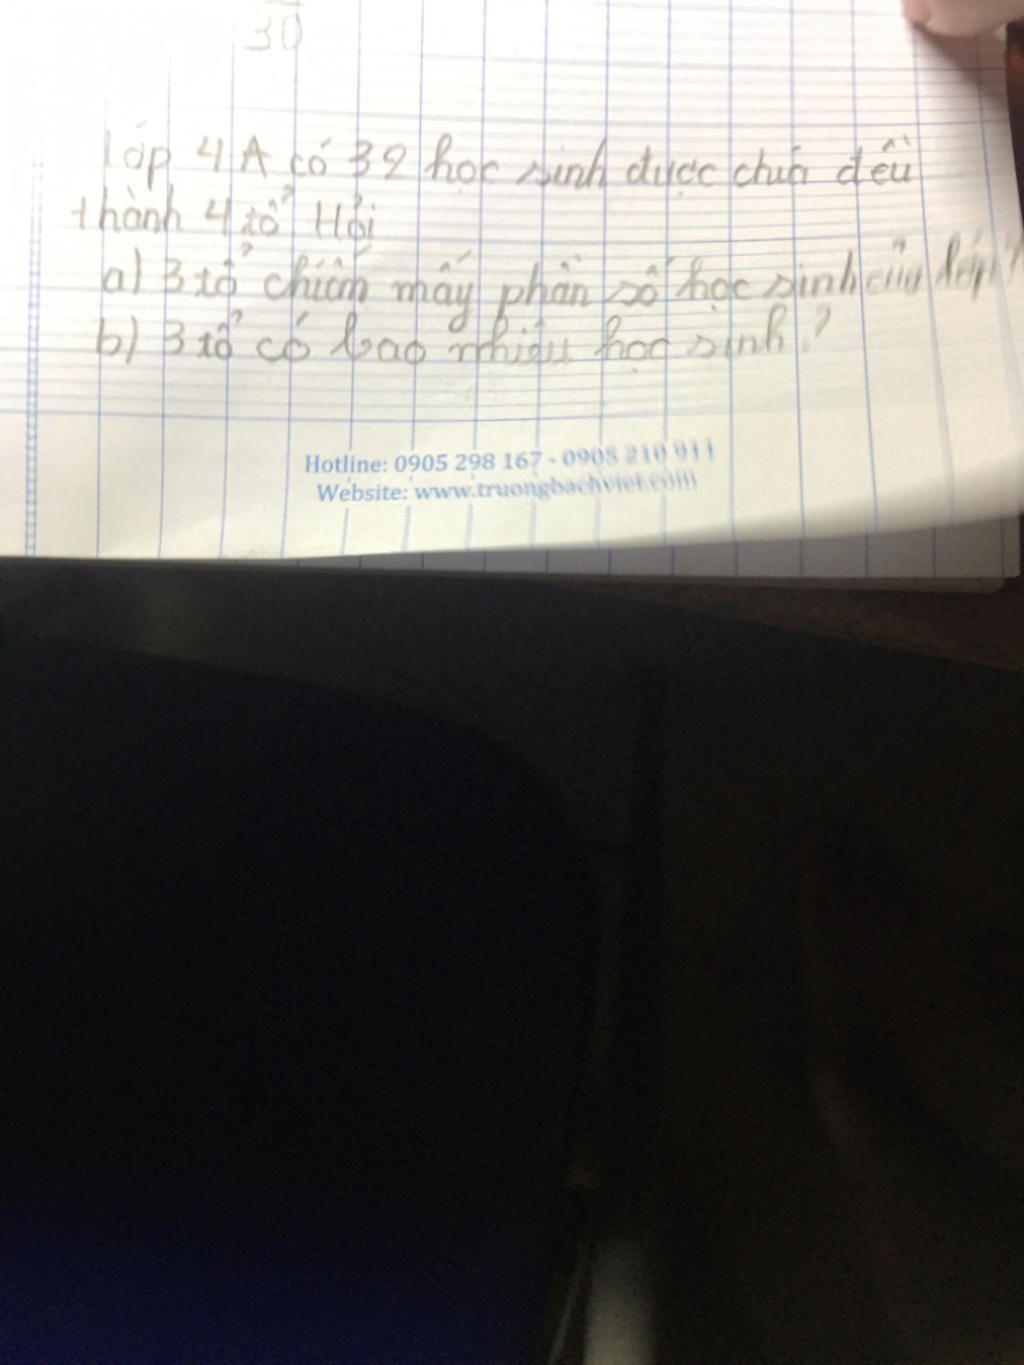 30
Lớp 4A có 32 học sinh được chia đều
thành 4 tổ Hỏi
a) 3 tổ chiếm mấy phần số học sinh của lớp?
b) 3 tổ có bao nhiêu học sinh?
Hotline: 0905 298 167 - 0905 210 911
Website: www.truongbachviet.com